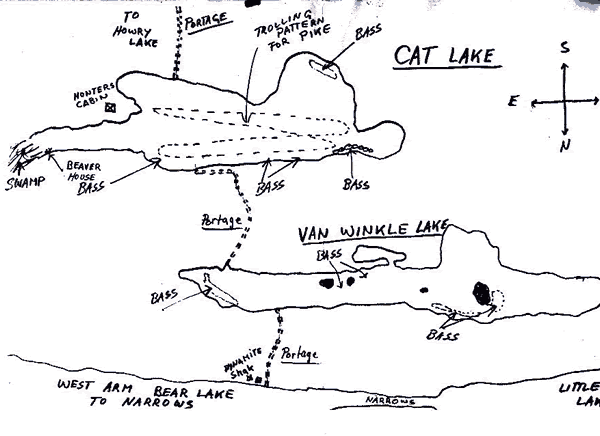 TO
HOWRY
LAKE
PORTAGE
TROLLING
PATTERN
FOR PIKE
BASS
CAT LAKE
S
E
N
HUNTERS
CABIN
SWAMP
BEAVER
HOUSE
BASS
BASS
BASS
Portage
VAN WINKLE LAKE
BASS
BASS
BASS
DYNAMITE
Shak
Portage
WEST ARM BEAR LAKE
TO NARROWS
NARROWS
LITTLE
LA